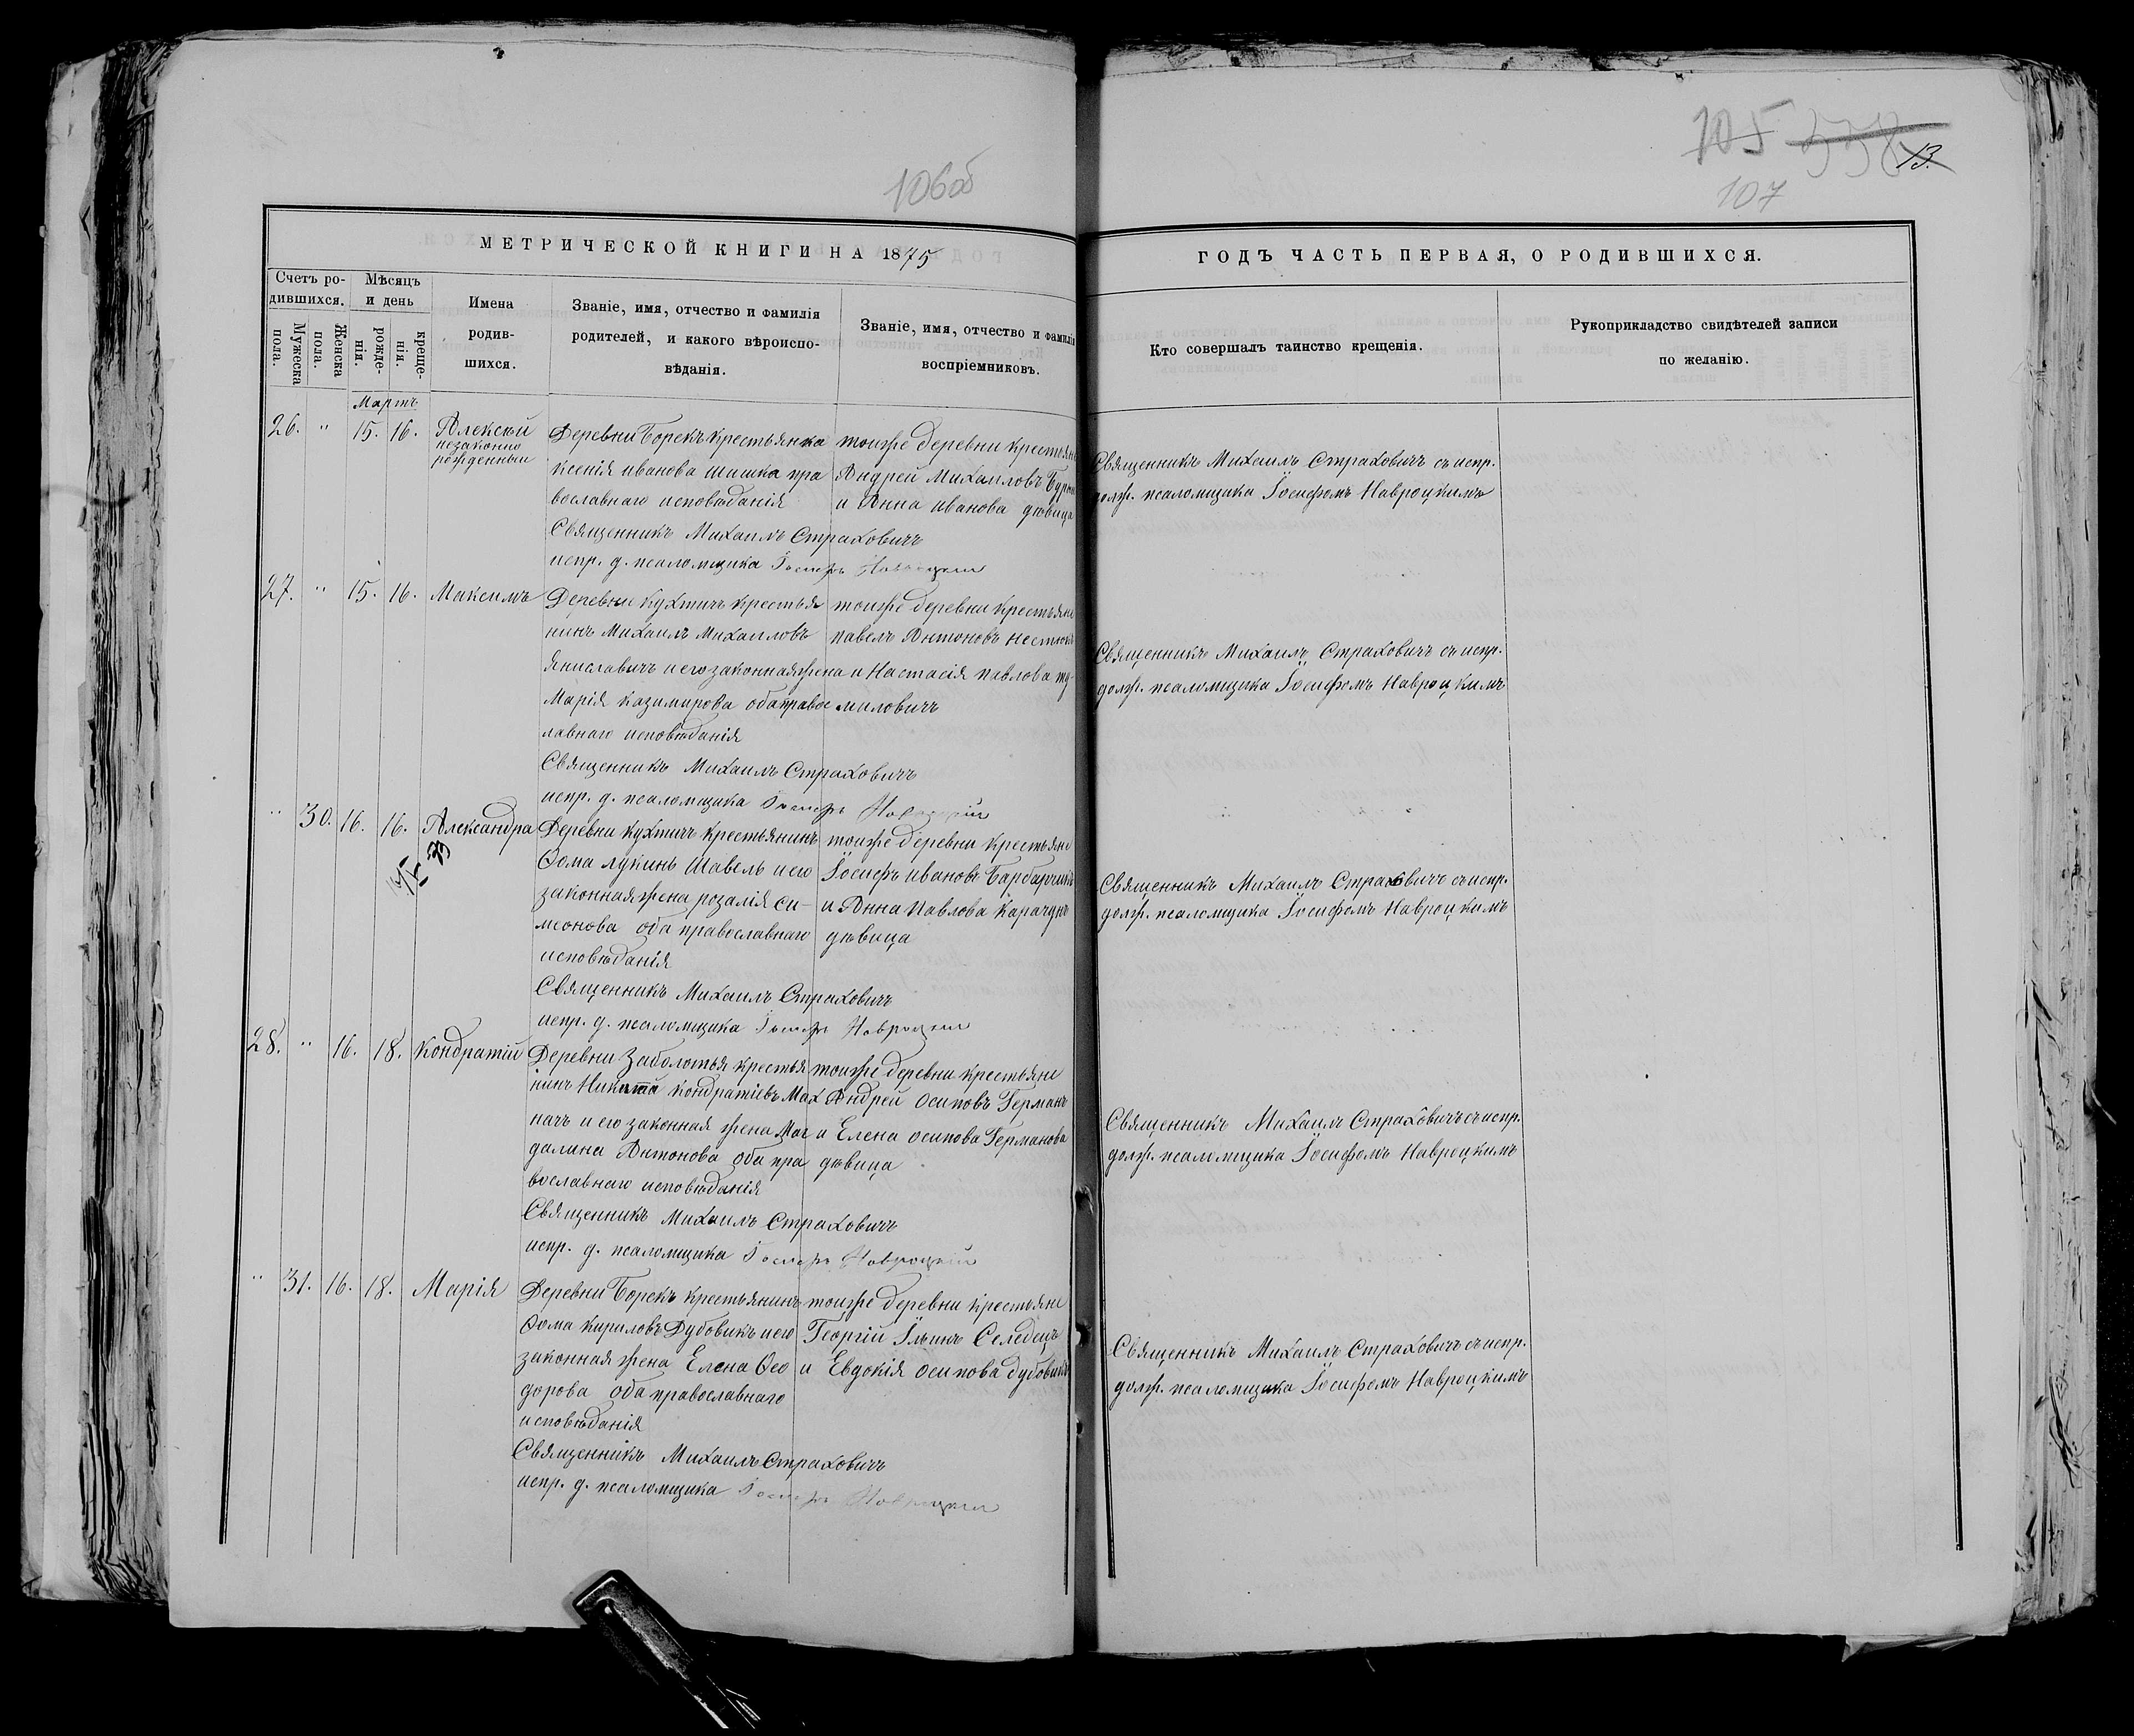 106об
МЕТРИЧЕСКОЙ КНИГИ НА 1875
Счетъ ро-
дившихся.
Мѣсяцъ
и день
Мужеска
пола.
Женска
пола.
рожде-
нія.
креще-
нія.
Имена
родив-
шихся.
Званіе, имя, отчество и фамилія
родителей, и какого вѣроиспо-
вѣданія.
Званіе, имя, отчество и фамилія
воспріемниковъ.
Мартъ
26. " 15. 16. Алексѣй
незаконно
рожденный
Деревни Борекъ крестьянка
ксенія иванова шишка пра
вославнаго исповѣданія
Священникъ Михаилъ Страховичъ
испр. д. псаломщика Іосифъ Навроцкій
тойже деревни крестьяне
Андрей Михайловъ
и Анна иванова дѣвица
27. " 15. 16. Максимъ
Деревни Кухтичъ крестья
нинъ Михаилъ Михайловъ
яниславичъ и его законная жена
Марія казимирова оба правос
лавнаго исповѣданія
Священникъ Михаилъ Страховичъ
испр. д. псаломщика Іосифъ Навроцкій
тойже деревни крестьяне
павелъ Антоновъ
и Настасія павлова ту-
миловичъ
" 30. 16. 16. Александра
Деревни Кухтичъ крестьянинъ
Ѳома лукинъ Шавель и его
законная жена розалія си-
меонова оба православнаго
исповѣданія
Священникъ Михаилъ Страховичъ
испр. д. псаломщика Іосифъ Навроцкій
тойже деревни крестьяне
Іосифъ ивановъ Барбарчикъ
и Анна Павлова Карачунъ
дѣвица
28. " 16. 18. Кондратій
Деревни Заболотья крестья
нинъ Никита кондратіевъ Мах
начъ и его законная жена Маг
далина Антонова оба пра
вославнаго исповѣданія
Священникъ Михаилъ Страховичъ
испр. д. псаломщика Іосифъ Навроцкій
тойже деревни крестьяне
Андрей Осиповъ Германъ
и Елена осипова Германова
дѣвица
" 31. 16. 18. Марія
Деревни Борекъ крестьянинъ
Ѳома кириловъ Дубовикъ и его
законная жена Елена Ѳео
дорова оба православнаго
исповѣданія
Священникъ Михаилъ Страховичъ
испр. д. псаломщика Іосифъ Навроцкій
тойже деревни крестьяне
Георгій Ильинъ Селедецъ
и Евдокія осипова дубовикъ
105 558 13.
107
ГОДЪ ЧАСТЬ ПЕРВАЯ, О РОДИВШИХСЯ.
Кто совершалъ таинство крещенія.
Рукоприкладство свидѣтелей записи
по желанію.
Священникъ Михаилъ Страховичъ съ испр.
долж. псаломщика Іосифомъ Навроцкимъ
Священникъ Михаилъ Страховичъ съ испр.
долж. псаломщика Іосифомъ Навроцкимъ
Священникъ Михаилъ Страховичъ съ испр.
долж. псаломщика Іосифомъ Навроцкимъ
Священникъ Михаилъ Страховичъ съ испр.
долж. псаломщика Іосифомъ Навроцкимъ
Священникъ Михаилъ Страховичъ съ испр.
долж. псаломщика Іосифомъ Навроцкимъ